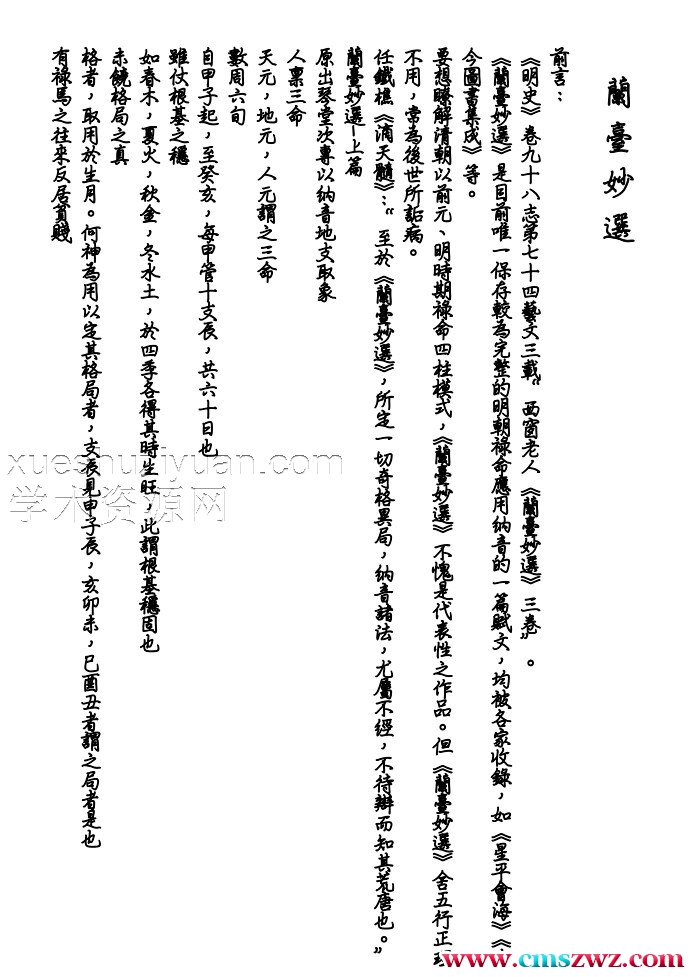 蘭臺妙選
前言：
《明史》卷九十八志第七十四藝文三載“西窗老人《蘭臺妙選》三卷”。
《蘭臺妙選》是目前唯一保存較為完整的明朝祿命應用納音的一篇賦文，均被各家收錄，如《星平會海》《
今圖書集成》等。
要想瞭解清朝以前元、明時期祿命四柱模式，《蘭臺妙選》不愧是代表性之作品。但《蘭臺妙選》舍五行正理
不用，常為後世所詬病。
任鐵樵《滴天髓》：“至於《蘭臺妙選》，所定一切奇格異局，納音諸法，尤屬不經，不待辯而知其荒唐也。”
蘭臺妙選-上篇
原出琴堂次專以納音地支取象
人禀三命
天元，地元，人元謂之三命
數周六旬
自甲子起，至癸亥，每甲管十支辰，共六十日也
雖仗根基之穩
如春木，夏火，秋金，冬水土，於四季各得其時生旺，此謂根基穩固也
未饒格局之真
格者，取用於生月。何神為用以定其格局者，支辰見申子辰，亥卯未，巳酉丑者謂之局者是也
有祿馬之往來反居貧賤
xueshuziyuan.com
学术资源网
www.cmszwz.com